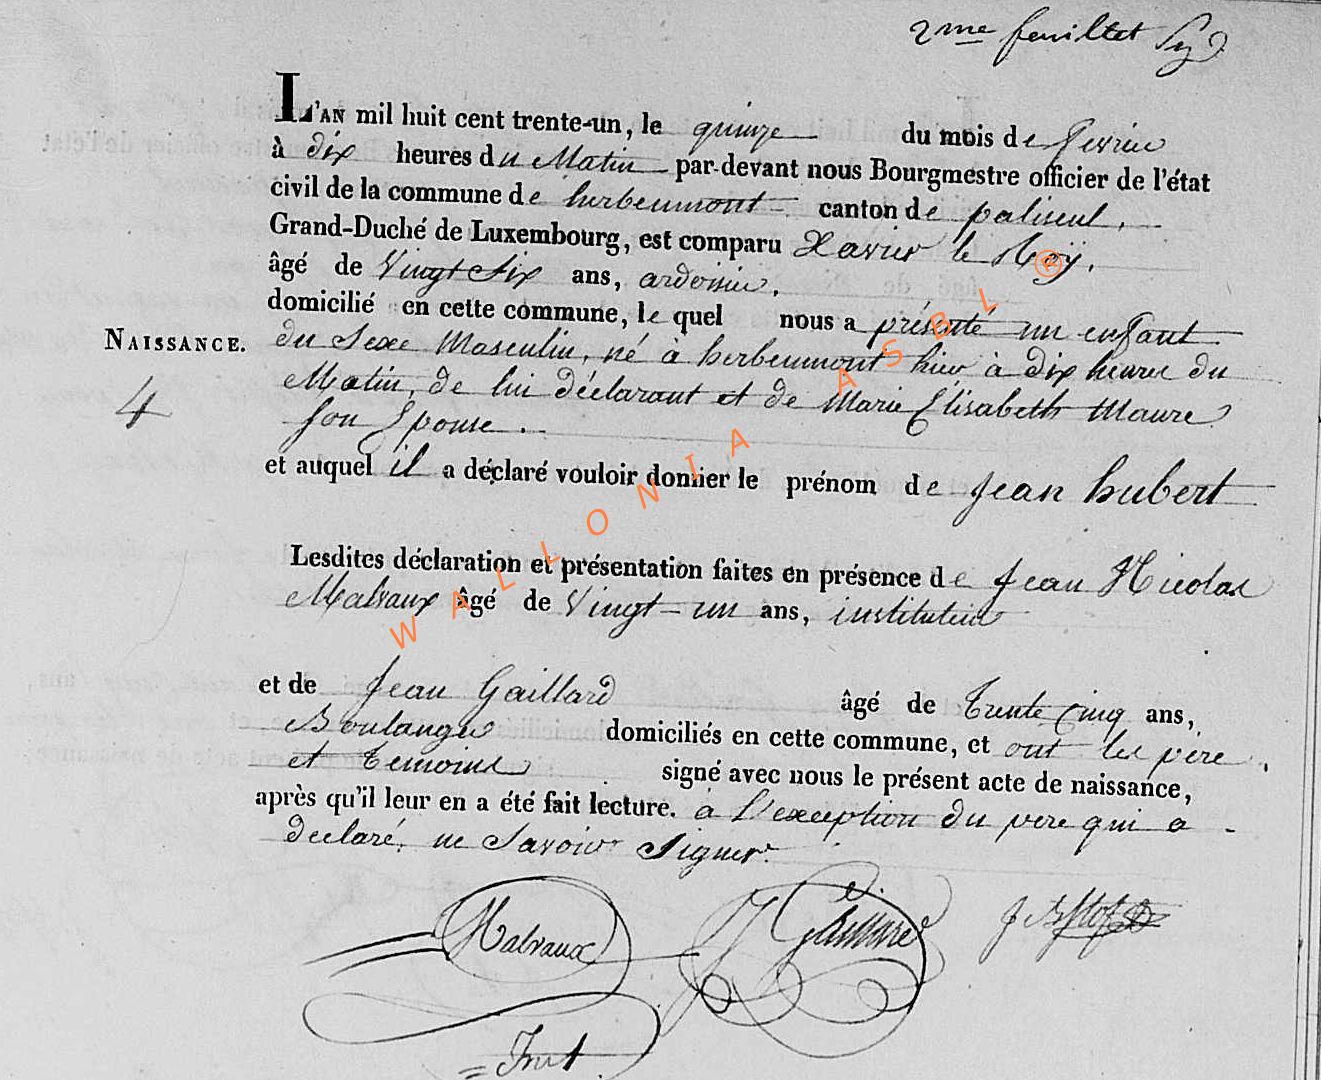 2me feuillet
L'AN mil huit cent trente-un, le quinze du mois de fevrier
à dix heures du Matin par-devant nous Bourgmestre officier de l'état
civil de la commune de herbeumont canton de paliseul,
Grand-Duché de Luxembourg, est comparu Xavier le Roÿ,
âgé de Vingt Six ans, ardoisier,
domicilié en cette commune, le quel nous a présenté un enfant
NAISSANCE.
du Sexe Masculin, né à herbeumont hier à dix heures du
4
Matin, de lui déclarant et de Marie Elisabeth Maure
Son Epouse.
et auquel il a déclaré vouloir donner le prénom de Jean hubert
Lesdites déclaration et présentation faites en présence de Jean Nicolas
Malvaux âgé de Vingt-un ans, instituteur
et de Jean Gaillard âgé de Trente Cinq ans,
Boulanger domiciliés en cette commune, et ont les père
et temoins signé avec nous le présent acte de naissance,
après qu'il leur en a été fait lecture. à L'exception du pere qui a
declaré, ne Savoir Signer.
Malvaux J Gaillard
Inst
WALLONIA ASBL ®